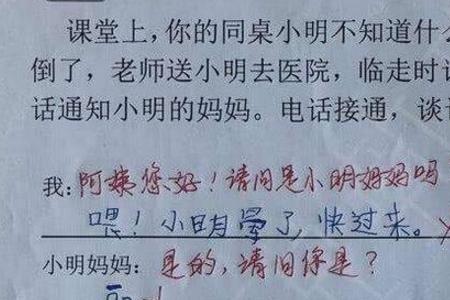 课堂上，你的同桌小明不知道什
倒了，老师送小明去医院，临走时
话通知小明的妈妈。电话接通，谈
我：阿姨您好！请问是小明妈妈吗
喂！小明晕了，快过来。
小明妈妈：是的，请问你是？